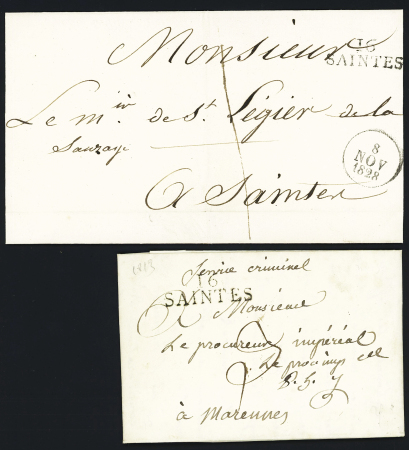 Monsieur
16
SAINTES
Le m.is de St. Légier de la
Sauzaye
8
NOV
1828
A Saintes
1818
Service criminel
16
SAINTES
A Monsieur
Le procureur impérial
à Marennes